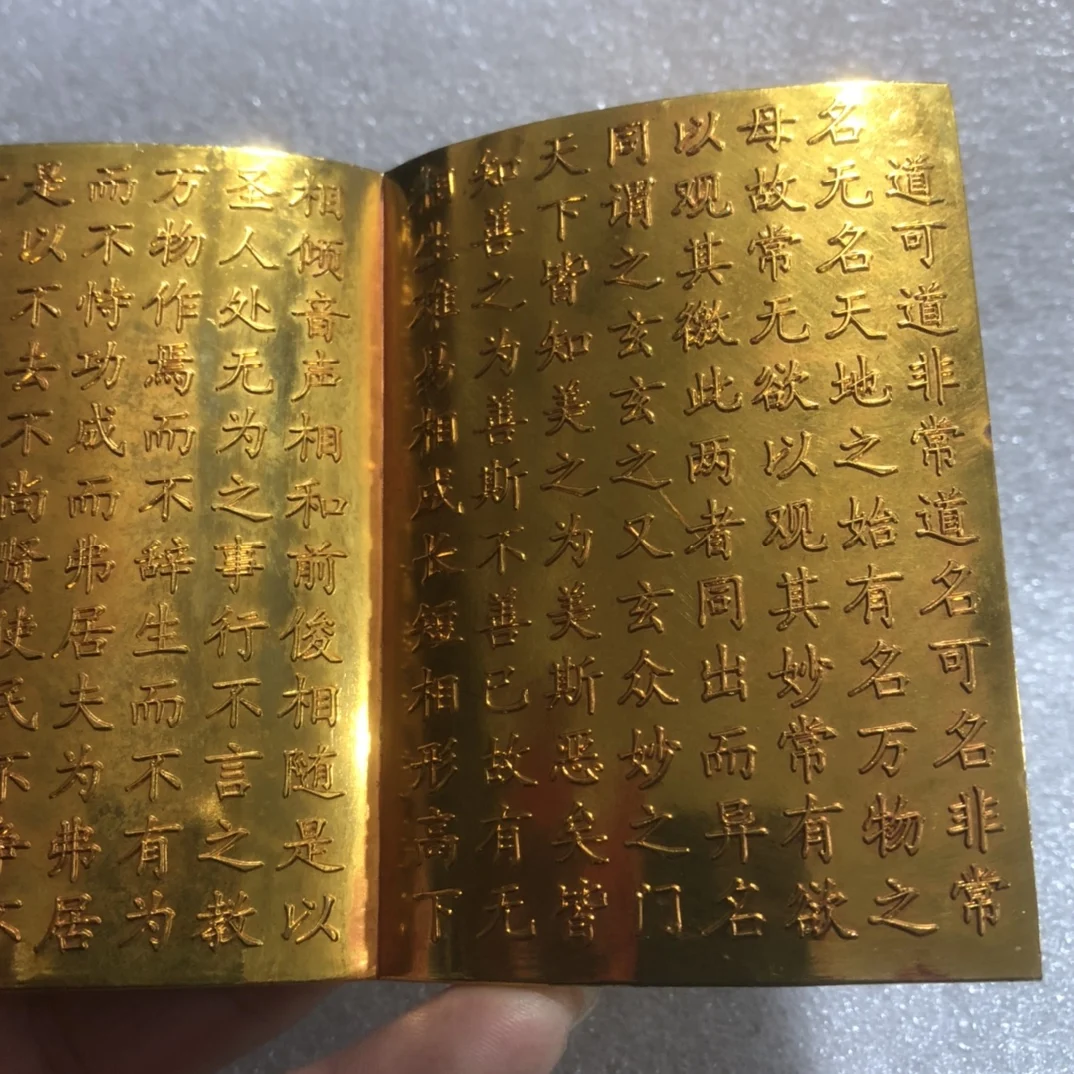 道可道非常道名可名非常
名无名天地之始有名万物之
母故常无欲以观其妙常有欲
以观其徼此两者同出而异名
同谓之玄玄之又玄众妙之门
天下皆知美之为美斯恶矣皆
知善之为善斯不善已故有无
相生难易相成长短相形高下
相倾音声相和前俊相随是以
圣人处无为之事行不言之教
万物作焉而不辞生而不有为
而不恃功成而弗居夫为弗居
是以不去不尚贤使民不争不